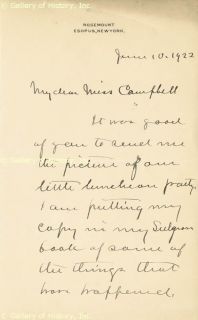 © Gallery of History, Inc.
ROSEMOUNT
ESOPUS, NEW YORK.
June 10. 1922
My dear Miss Campbell
It was good
of you to send me
the picture of our
little luncheon party.
I am putting my
copy in my
book of some of
the things that
have happened.
© Gallery of History, Inc.